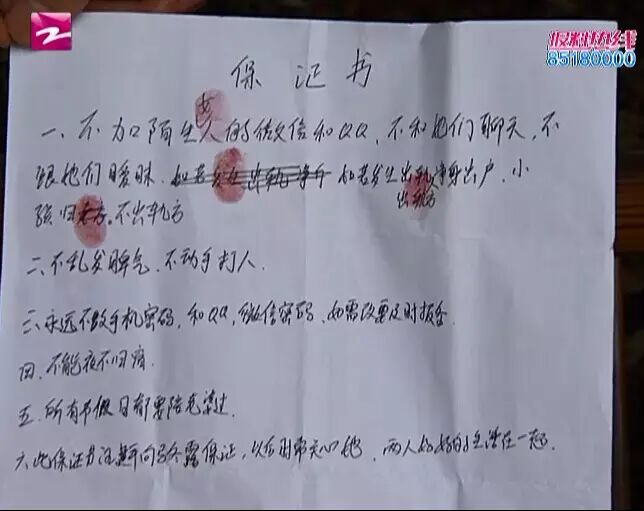 报料热线
85180000
保证书
一、不加陌生女人的微信和QQ,不和她们聊天,不
跟她们暧昧. 如若发生出轨 如若发生出轨净身出户,小
出轨方
孩归 不出轨方
二、不乱发脾气、不动手打人.
三、永远不改手机密码,和QQ,微信密码、如需改要及时报备
四、不能夜不归宿
五、所有节假日都要陪 过.
六、此保证书 向 保证,以后 关心她、两人好好的生活在一起.